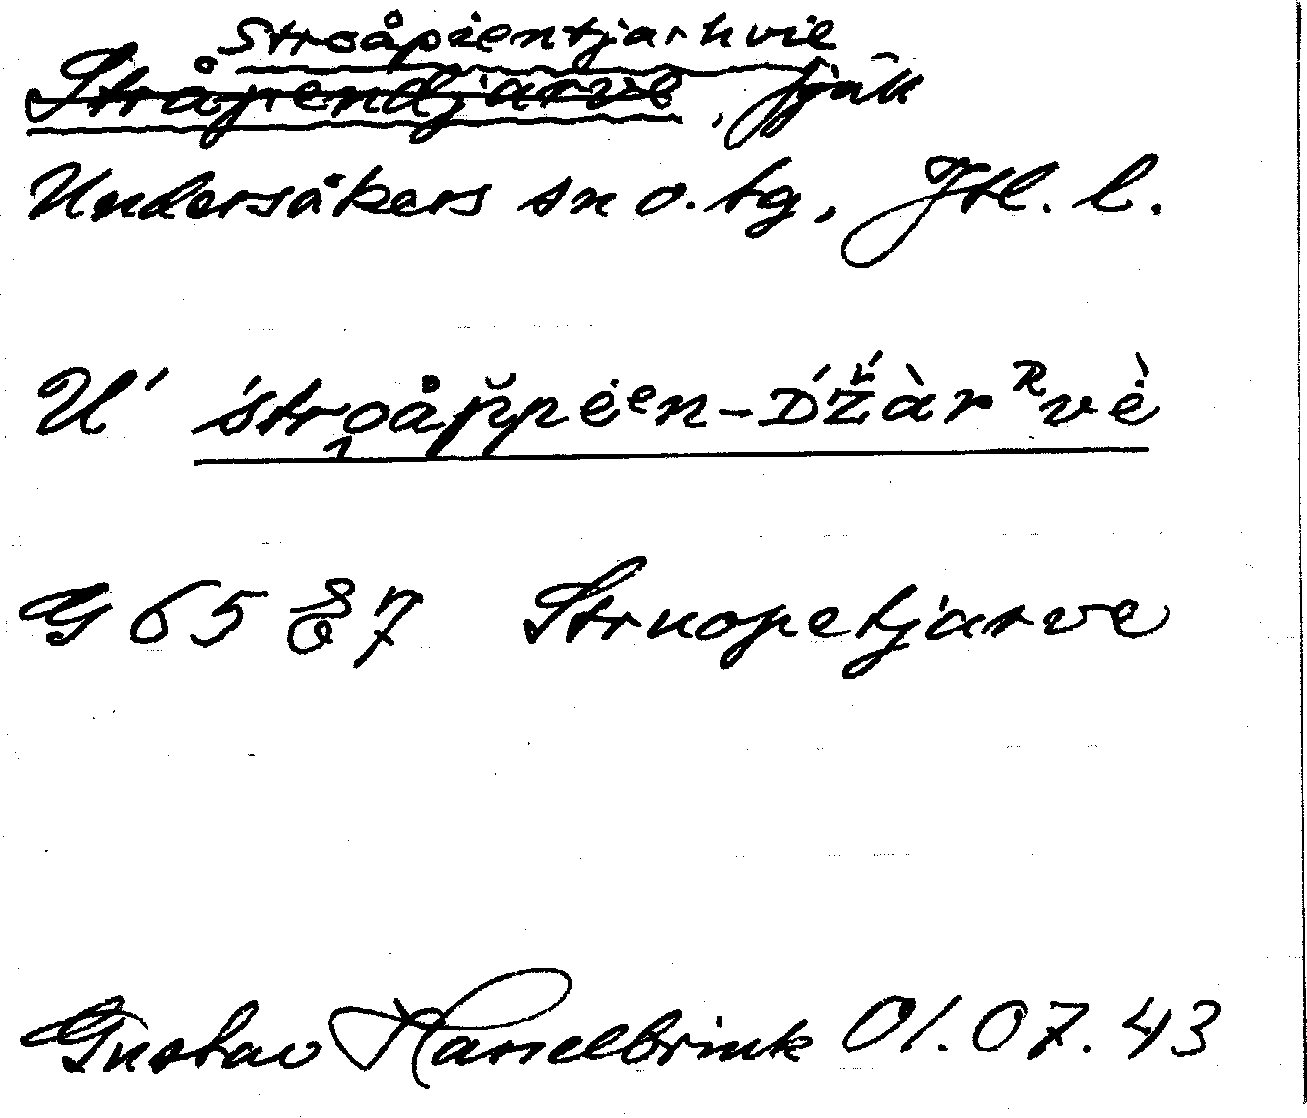 Stroåpientjarhvie
Stråpendjarve, fjäll
Undersåkers sn o. tg, Jtl. l.
U' stroåp̆pėᵉn-Dʹžàrᴿvè
G 65 8 7 Struopetjarve
Gustav Hasselbrink 01.07.43